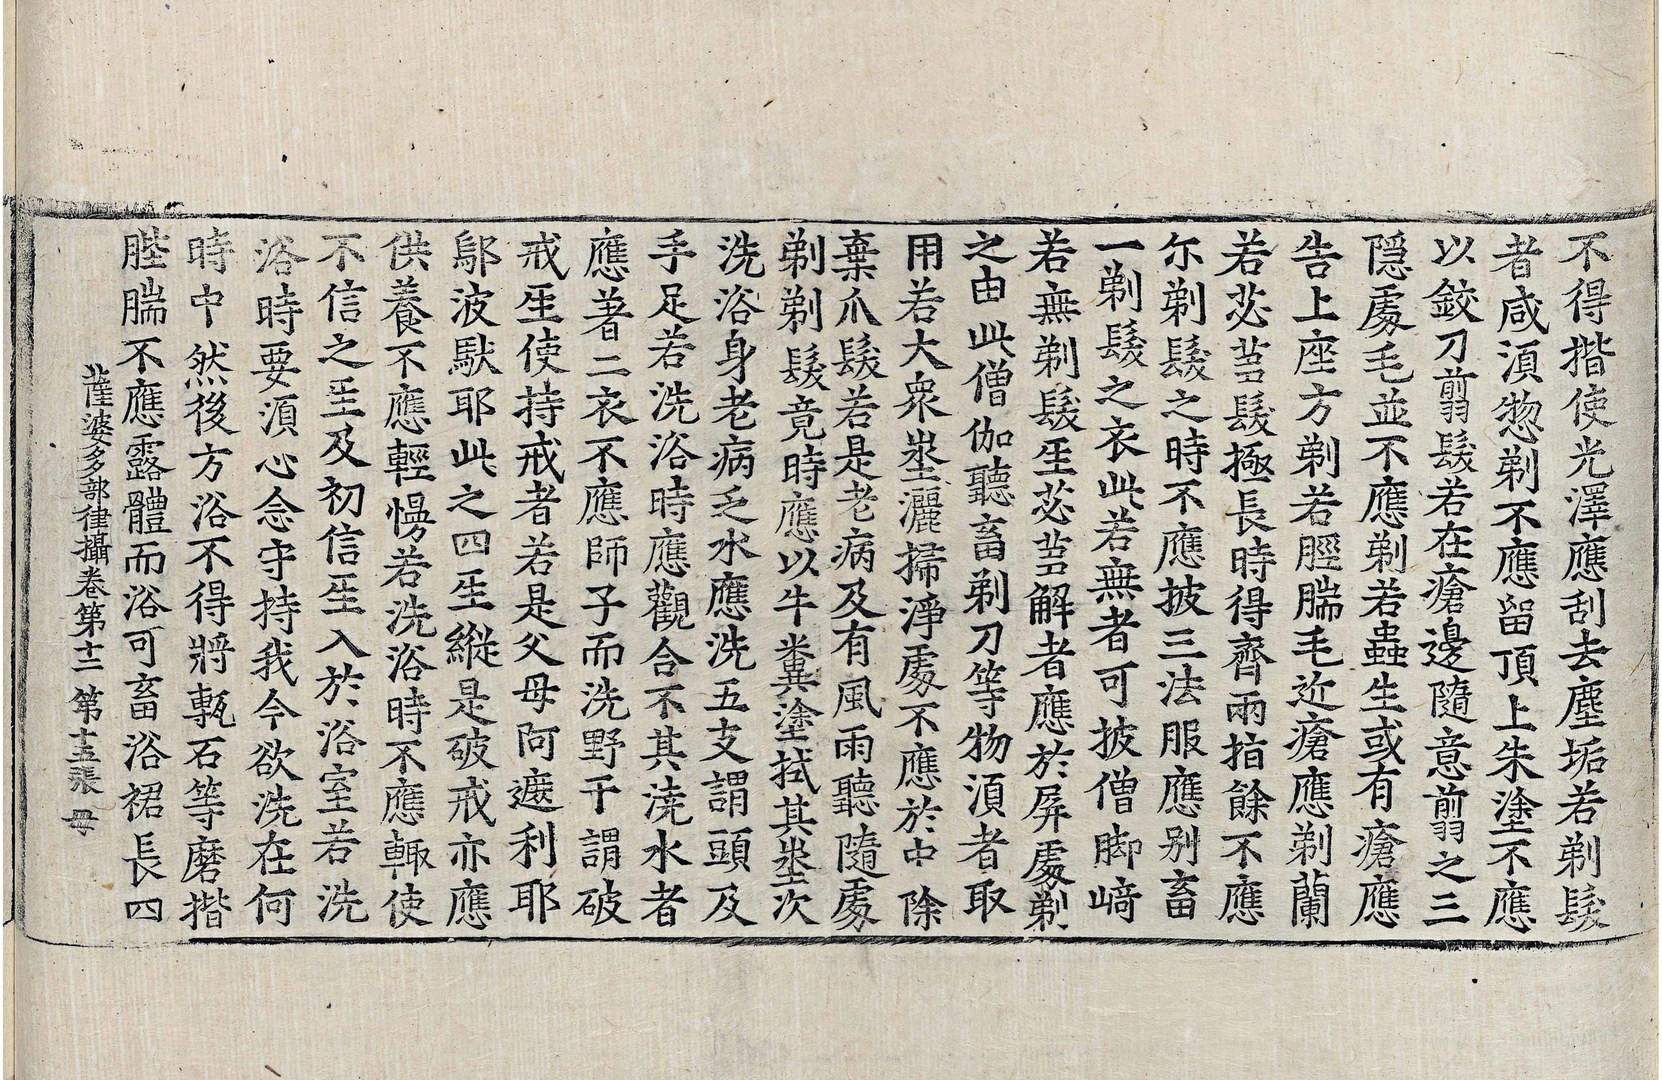 不得揩使光澤應刮去塵垢若剃髮
者咸湏惣剃不應留頂上朱塗不應
以鉸刀翦髮若在瘡邊隨意翦之三
隱處毛並不應剃若蟲生或有瘡應
告上座方剃若脛腨毛近瘡應剃蘭
若苾芻髮極長時得齊兩指餘不應
尓剃髮之時不應披三法服應別畜
一剃髮之衣此若無者可披僧脚崎
若無剃髮生苾芻解者應於屏處剃
之由此僧伽聽畜剃刀等物湏者取
用若大衆坐灑掃淨處不應於中除
棄爪髮若是老病及有風雨聽隨處
剃剃髮竟時應以牛糞塗拭其坐次
洗浴身老病乏水應洗五支謂頭及
手足若洗浴時應觀合不其澆水者
應著二衣不應師子而洗野干謂破
戒𤯔使持戒者若是父母阿遮利耶
鄔波馱耶此之四生縱是破戒亦應
供養不應輕慢若洗浴時不應輙使
不信之𤯔及初信𤯔入於浴室若洗
浴時要湏心念守持我今欲洗在何
時中然後方浴不得將甎石等磨揩
䏶腨不應露體而浴可畜浴裙長四
薩婆多部律攝卷第十二 第十五張 母